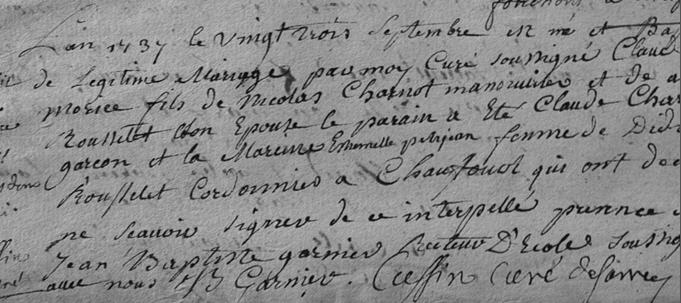 Lan 1737 le vingt trois Septembre est né et Ba
de Legitime Mariage par moy Curé soussigné Claude
morice fils de Nicolas Charnot manouvrier et de a
Rousselet son Epouse le parain a Eté Claude Char
garcon et la Mareine petitjean femme de Didi
Rousselet Cordonnier a qui ont de
ne scavoir signer de ce interpellé presence
Jean Baptiste garnier Recteur D'Ecole soussig
avec nous J B Garnier. Curé de